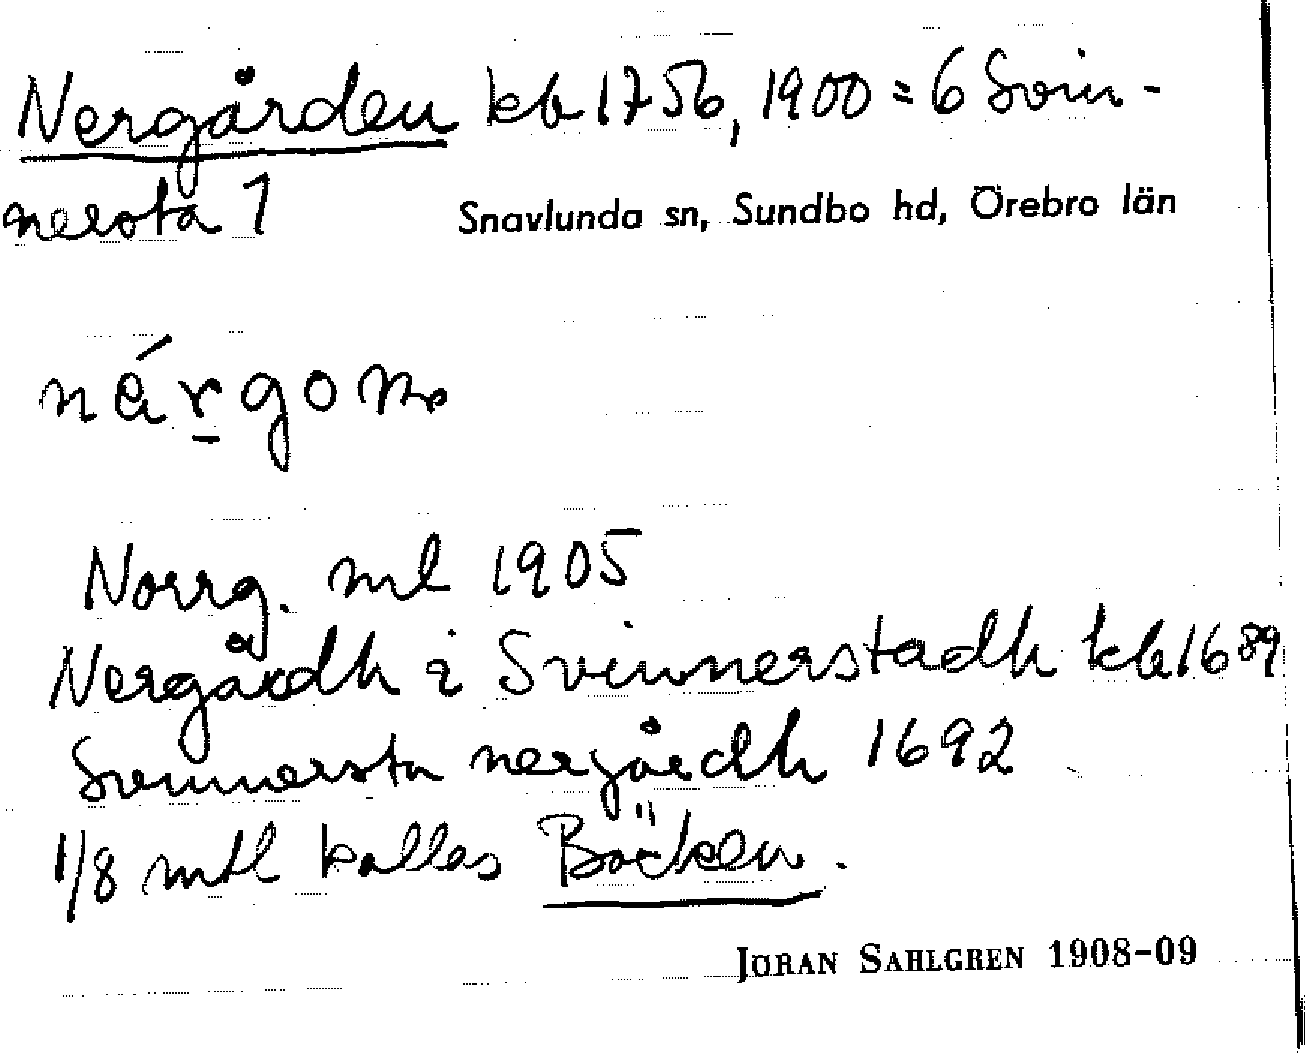 Nergården kb 1756, 1900 = 6 Svin-
nersta 1
Snavlunda sn, Sundbo hd, Örebro län
nérgoṇ
Norrg. ml 1905
Nergårdh i Svinnerstadh kb 1689
Svennersta nergårdh 1692
1/8 mtl kallas Bäcken.
JÖRAN SAHLGREN 1908-09